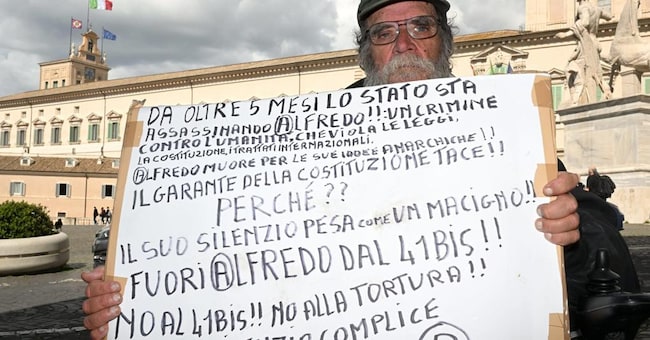 DA OLTRE 5 MESI LO STATO STA
ASSASSINANDO ⒶLFREDO!!: UN CRIMINE
CONTRO L'UMANITÀ, CHE VIOLA LE LEGGI,
LA COSTITUZIONE, I TRATTATI INTERNAZIONALI.
ⒶLFREDO MUORE PER LE SUE IDEE ANARCHICHE!!
IL GARANTE DELLA COSTITUZIONE TACE!!
PERCHÉ??
IL SUO SILENZIO PESA COME UN MACIGNO!!
FUORI ⒶLFREDO DAL 41BIS!!
NO AL 41BIS!! NO ALLA TORTURA!!
COMPLICE